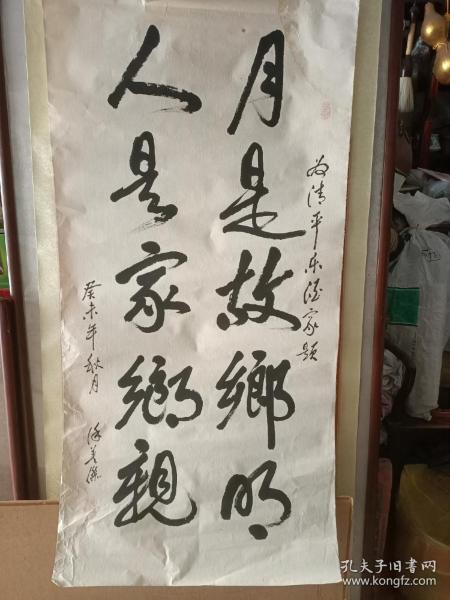 月是故鄉明
人是家鄉親
为清平乐酒家题
癸未年秋月
孔夫子旧书网
www.kongfz.com